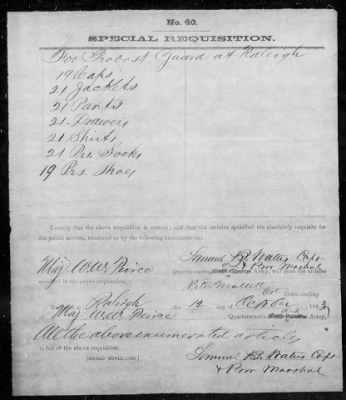 No. 40.
SPECIAL REQUISITION.
For Provost Guard at Raleigh
19 Caps
21 Jackets
21 Pants
21 Drawers
21 Shirts
21 Prs. Socks
19 Prs. Shoes
I certify that the above requisition is correct; and that the articles specified are absolutely requisite for
the public service, rendered so by the following circumstances:
Samuel B. Waters Capt
& Prov Marshal
Maj. W.W. Peirce Quartermaster Army, will issue the articles
specified in the above requisition.
Peter Mallett
Col Commanding.
Raleigh the 12 October 1863
Maj W.W. Peirce Quartermaster Army,
All the above enumerated articles
in full of the above requisition.
[SIGNED DUPLICATES.]
Samuel B. Waters Capt
& Prov Marshal